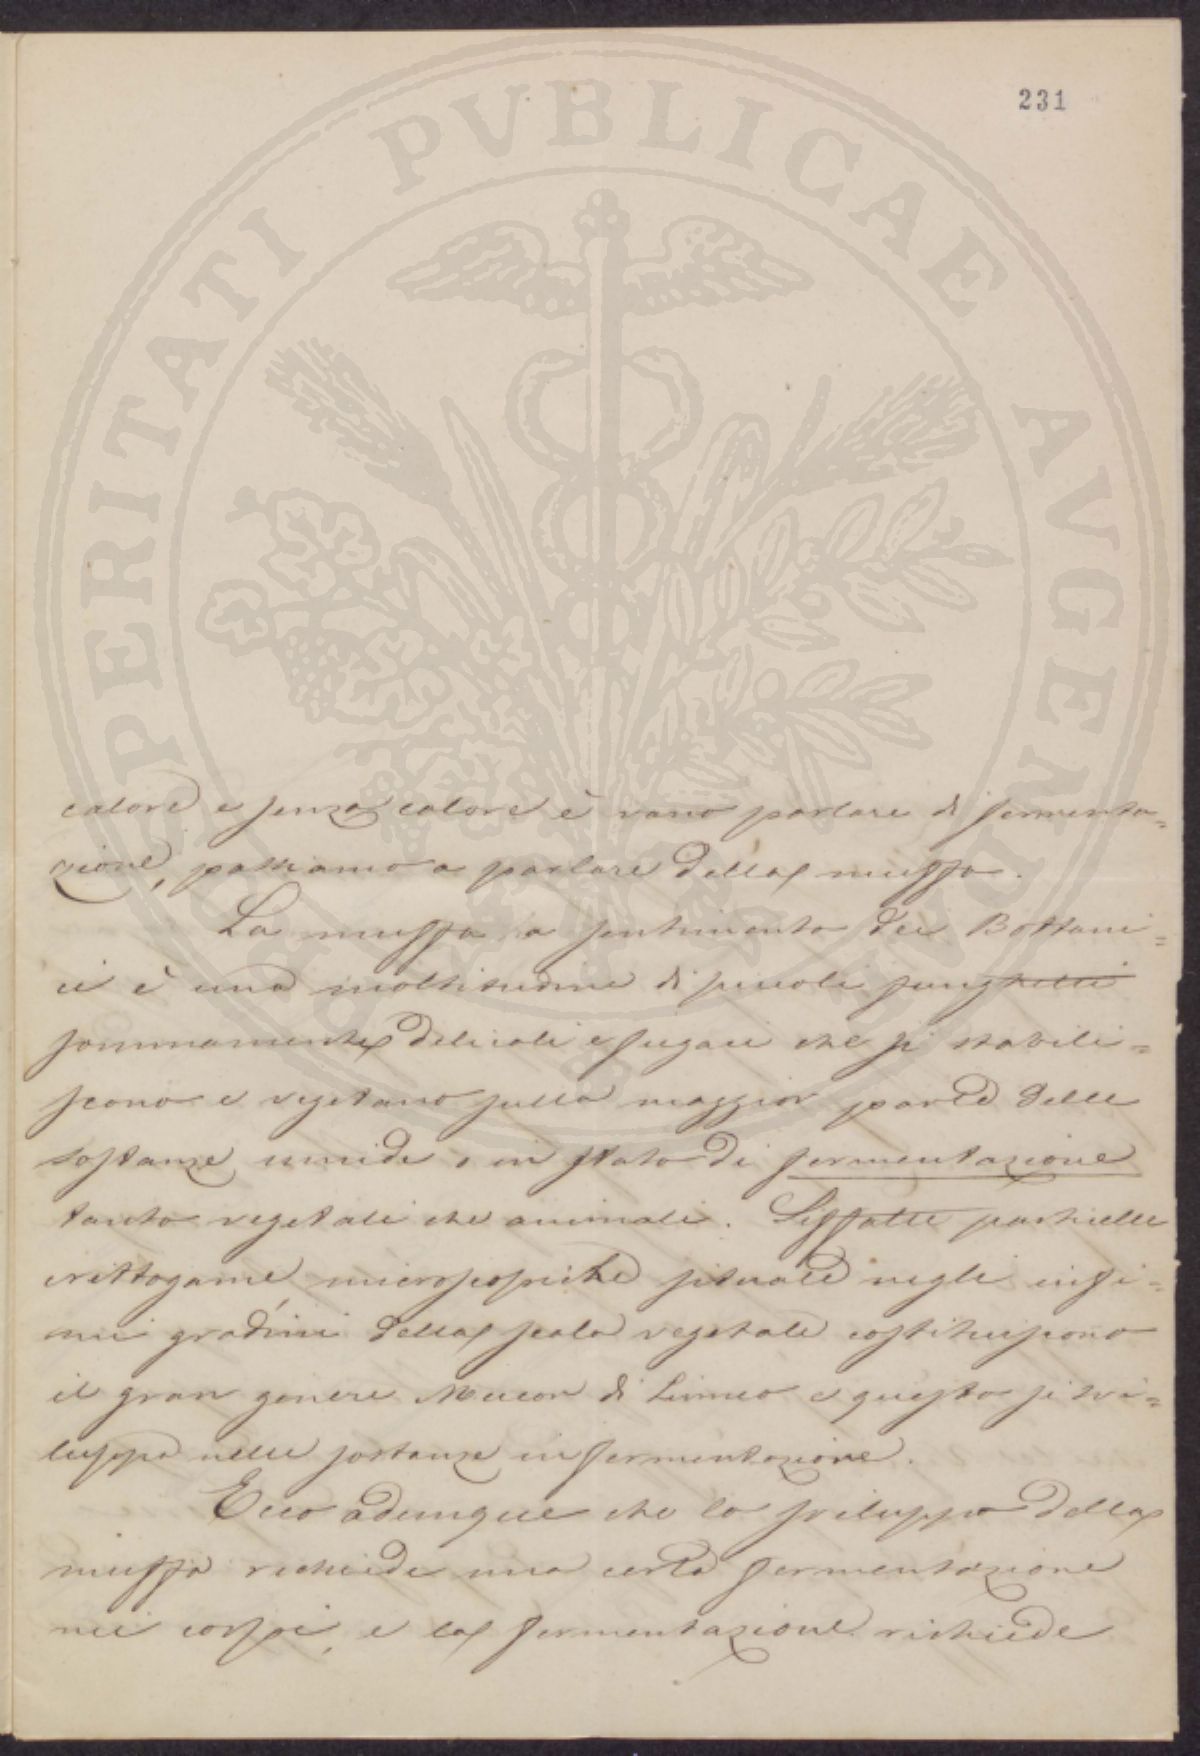 231
PROSPERITATI PVBLICAE AVGENDAE
calore e senza calore è vano parlare di fermenta=
zione, passiamo a parlare della muffa.
La muffa a sentimento dei Bottani=
ci è una moltitudine di piccoli funghetti
sommamente delicati e fugaci che si stabili=
scono e vegetano sulla maggior parte delle
sostanze umide o in stato di fermentazione
tanto vegetali che animali. Siffatte particelle
crittogame microscopiche situate negli infi=
mi gradini della scala vegetale costituiscono
il gran genere Mucor di Linneo e questo si svi=
luppa nelle sostanze in fermentazione.
Ecco adunque che lo sviluppo della
muffa richiede una certa fermentazione
nei corpi, e la fermentazione richiede